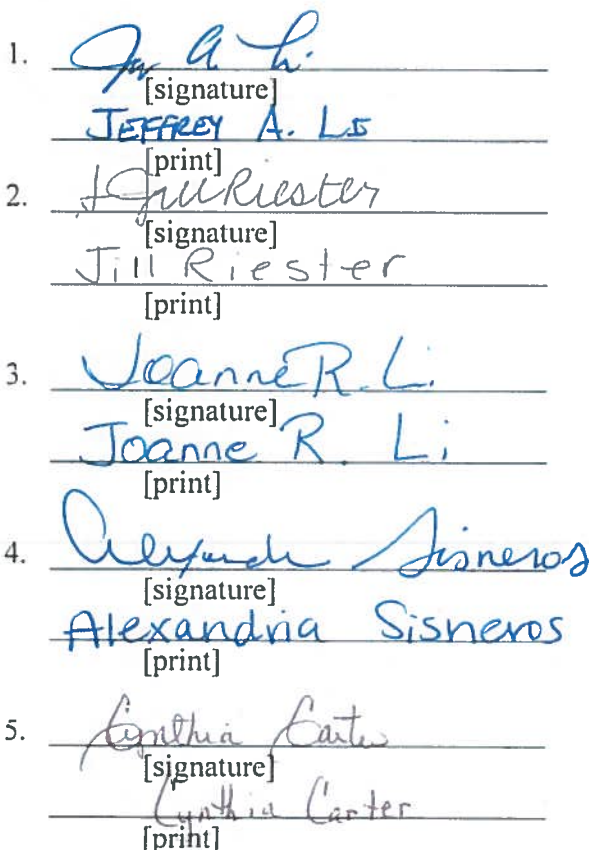 1.
[signature]
JEFFREY A. LI
[print]
2. Jill Riester
[signature]
Jill Riester
[print]
3. Joanne R. Li
[signature]
Joanne R. Li
[print]
4. Alexandria Sisneros
[signature]
Alexandria Sisneros
[print]
5. Cynthia Carter
[signature]
Cynthia Carter
[print]